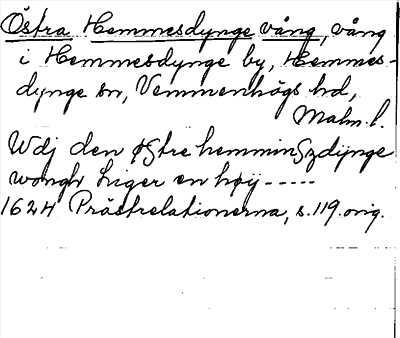 Östra Hemmesdynge vång, vång
i Hemmesdynge by, Hemmes-
dynge sn, Vemmenhögs hd,
Malm. l.
Wdj den østre hemminszdijnge
wongh Liger en høÿ -----
1624 Prästrelationerna, s. 119. orig.